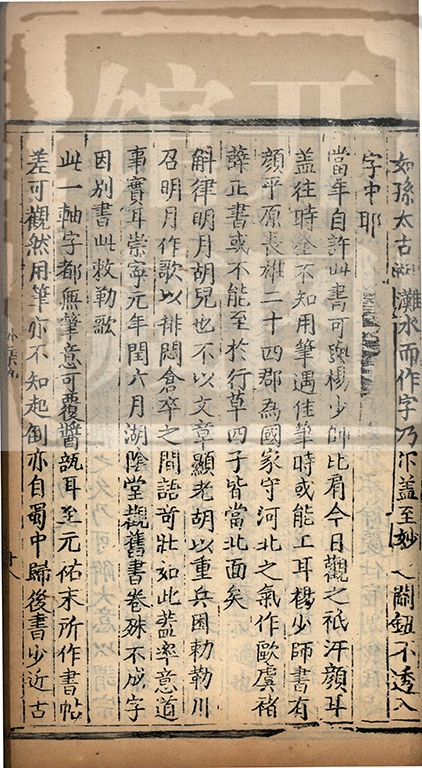 如孫太古畫灘水而作字乃爾蓋至妙入關鈕不透入
字中耶
當年自許此書可與楊少師比肩今日觀之祇汗顏耳
蓋往時全不知用筆遇佳筆時或能工耳楊少師書有
顏平原長雄二十四郡為國家守河北之氣作歐虞褚
薛正書或不能至於行草四子皆當北面矣
斛律明月胡兒也不以文章顯老胡以重兵困勅勒川
召明月作歌以排悶倉卒之間語奇壯如此蓋率意道
事實耳崇寧元年閏六月湖陰堂觀舊書卷殊不成字
因別書此敕勒歌
此一軸字都無筆意可覆醬瓿耳至元佑末所作書帖
差可觀然用筆亦不知起倒亦自蜀中歸後書少近古